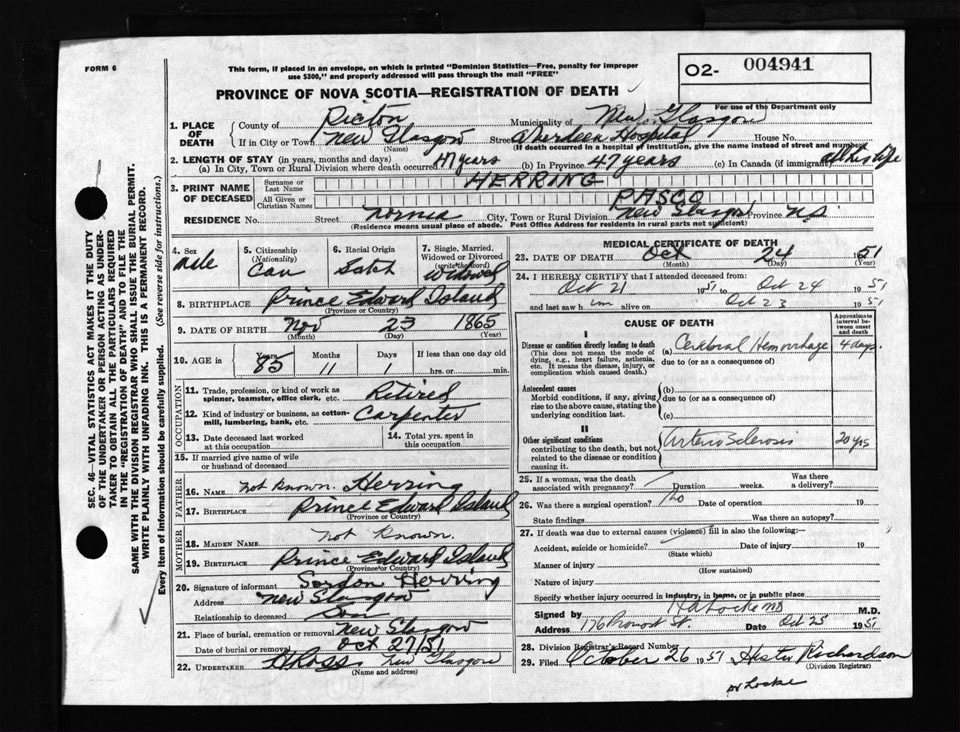 FORM 6
This form, if placed in an envelope, on which is printed "Dominion Statistics—Free, penalty for improper
use $300," and properly addressed will pass through the mail "FREE"
O2- 004941
PROVINCE OF NOVA SCOTIA—REGISTRATION OF DEATH
For use of the Department only
1. PLACE OF DEATH
County of Pictou Municipality of New Glasgow
If in City or Town New Glasgow (Name) Street Aberdeen Hospital House No.
(If death occurred in a hospital or institution, give the name instead of street and number)
2. LENGTH OF STAY (in years, months and days)
(a) In City, Town or Rural Division where death occurred 47 years (b) In Province 47 years (c) In Canada (if immigrant) all his life
3. PRINT NAME OF DECEASED
Surname or Last Name HERRING
All Given or Christian Names PASCO
RESIDENCE No. Street City, Town or Rural Division New Glasgow Province N.S.
(Residence means usual place of abode. Post Office Address for residents in rural parts not sufficient)
4. Sex Male
5. Citizenship (Nationality) Can
6. Racial Origin
7. Single, Married, Widowed or Divorced (write the word) Widowed
8. BIRTHPLACE Prince Edward Island
(Province or Country)
9. DATE OF BIRTH Nov 23 1865
(Month) (Day) (Year)
10. AGE in Years 85 Months 11 Days 1 If less than one day old
hrs. or min.
OCCUPATION
11. Trade, profession, or kind of work as spinner, teamster, office clerk, etc. Retired
12. Kind of industry or business, as cotton-mill, lumbering, bank, etc. Carpenter
13. Date deceased last worked at this occupation
14. Total yrs. spent in this occupation
15. If married give name of wife or husband of deceased
FATHER
16. Name Not Known. Herring
17. Birthplace Prince Edward Island
(Province or Country)
MOTHER
18. Maiden Name Not Known.
19. Birthplace Prince Edward Island
(Province or Country)
20. Signature of informant Gordon Herring
Address New Glasgow
Relationship to deceased Son
21. Place of burial, cremation or removal New Glasgow
Date of burial or removal Oct 27/51
22. UNDERTAKER Ross New Glasgow
(Name and address)
MEDICAL CERTIFICATE OF DEATH
23. DATE OF DEATH Oct 24 1951
(Month) (Day) (Year)
24. I HEREBY CERTIFY that I attended deceased from:
Oct 21 1951 Oct 24 1951
and last saw him Oct 23 1951
CAUSE OF DEATH
Approximate interval between onset and death
I
Disease or condition directly leading to death
(This does not mean the mode of dying, e.g., heart failure, asthenia, etc. It means the disease, injury, or complication which caused death.)
(a) Cerebral Hemorrhage 4 days.
due to (or as a consequence of)
Antecedent causes
Morbid conditions, if any, giving rise to the above cause, stating the underlying condition last.
(b)
due to (or as a consequence of)
(c)
II
Other significant conditions contributing to the death, but not related to the disease or condition causing it.
Arterio Sclerosis 20 yrs
25. If a woman, was the death associated with pregnancy? Duration weeks. Was there a delivery?
26. Was there a surgical operation? No Date of operation 19
State findings Was there an autopsy?
27. If death was due to external causes (violence) fill in also the following:—
Accident, suicide or homicide? Date of injury 19
(State which)
Manner of injury
(How sustained)
Nature of injury
Specify whether injury occurred in industry, in home, or in public place
Signed by Locke MD M.D.
Address Date Oct 25 1951
28. Division Registrar's Record Number
29. Filed October 26 1951 Hester Richardson
(Division Registrar)
Dr Locke
SEC. 46—VITAL STATISTICS ACT MAKES IT THE DUTY
OF THE UNDERTAKER OR PERSON ACTING AS UNDER-
TAKER TO OBTAIN ALL THE PARTICULARS REQUIRED
IN THE "REGISTRATION OF DEATH" AND TO FILE THE
SAME WITH THE DIVISION REGISTRAR WHO SHALL ISSUE THE BURIAL PERMIT.
WRITE PLAINLY WITH UNFADING INK. THIS IS A PERMANENT RECORD.
Every item of information should be carefully supplied. (See reverse side for instructions.)